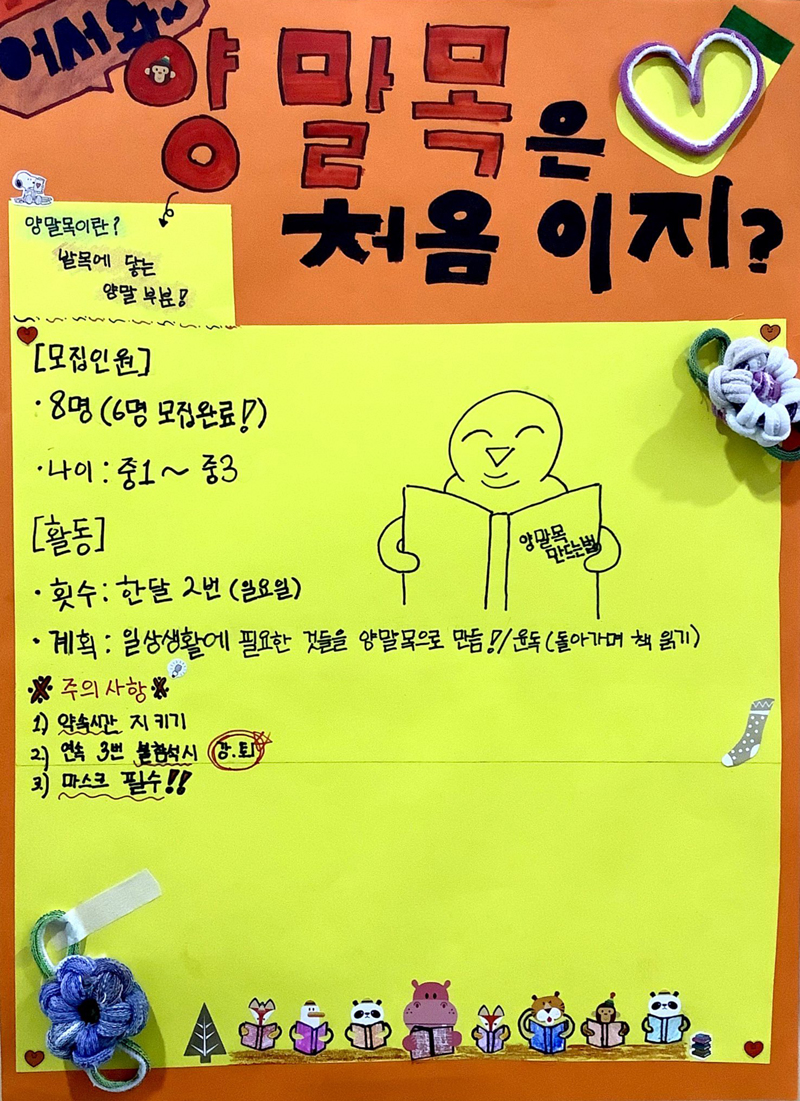 어서와~
양말목은
처음이지?
양말목이란?
발목에 닿는
양말 부분!
[모집인원]
· 8명 (6명 모집완료!)
· 나이 : 중1 ~ 중3
[활동]
양말목
만드는법
· 횟수 : 한달 2번 (일요일)
· 계획 : 일상생활에 필요한 것들을 양말목으로 만듬! / 윤독 (돌아가며 책 읽기)
※ 주의 사항 ※
1) 약속시간 지키기
2) 연속 3번 불참석시 강.퇴
3) 마스크 필수!!